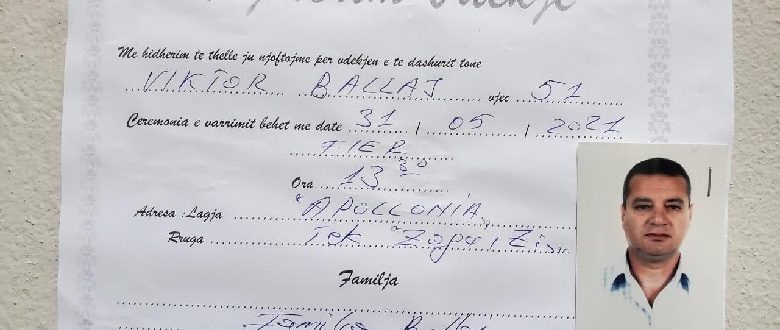 Me hidherim te thelle ju njoftojme per vdekjen e te dashurit tone
VIKTOR BALLAJ vjec 51
Ceremonia e varrimit behet me date 31 / 05 / 2021
FIER
Ora 13 30
Adresa :Lagja "APOLLONIA
Rruga Tek "Zogu i Zi
Familja
Familja